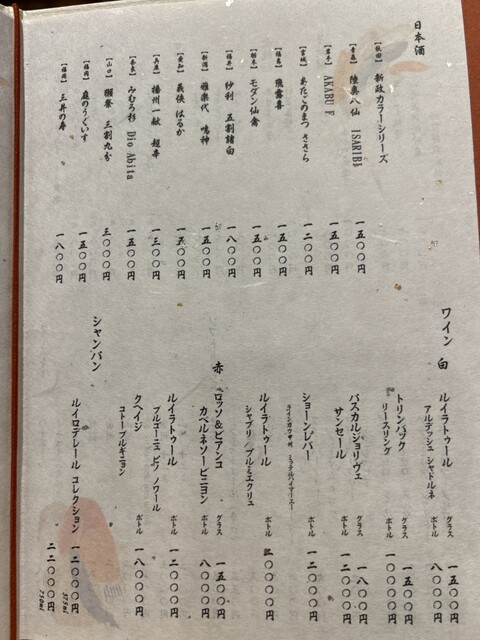 日本酒
【秋田】 新政カラーシリーズ
【青森】 陸奥八仙 ISARIBI 一五〇〇円
【岩手】 AKABU F 一五〇〇円
【宮城】 あたごのまつ ささら 一二〇〇円
【福島】 飛露喜 一五〇〇円
【栃木】 モダン仙禽 一五〇〇円
【福井】 紗利 五割諸白 一八〇〇円
【新潟】 雅楽代 鳴神 一五〇〇円
【愛知】 義侠 はるか 一五〇〇円
【兵庫】 播州一献 超辛 一三〇〇円
【奈良】 みむろ杉 Dio Abita 一五〇〇円
【山口】 獺祭 三割九分 三〇〇〇円
【福岡】 庭のうぐいす 一五〇〇円
【福岡】 三井の寿 一八〇〇円
ワイン 白
ルイラトゥール グラス 一五〇〇円
アルデッシュ シャルドネ ボトル 八〇〇〇円
トリンバック グラス 一五〇〇円
リースリング ボトル 一〇〇〇〇円
パスカルジョリヴェ グラス 一八〇〇円
サンセール ボトル 一二〇〇〇円
ショーンレバー ボトル 一二〇〇〇円
ルイラトゥール ボトル
シャブリ プルミエクリュ
赤
ロッソ&ビアンコ グラス 一五〇〇円
カベルネソービニヨン ボトル 八〇〇〇円
ルイラトゥール ボトル 一二〇〇〇円
ブルゴーニュ ピノ ノワール
クヘイジ ボトル 一八〇〇〇円
コトー ブルギニョン
シャンパン
ルイロデレール コレクション 一二〇〇〇円 375ml
二二〇〇〇円 750ml